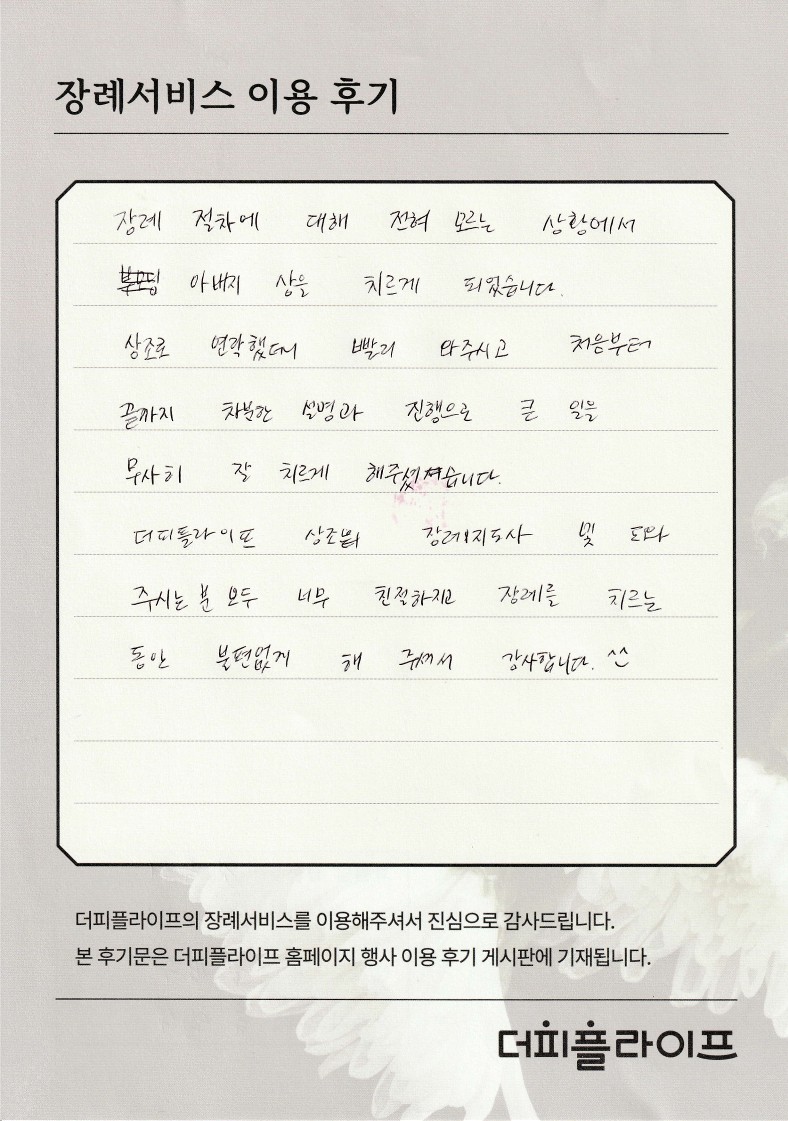 장례서비스 이용 후기
장례 절차에 대해 전혀 모르는 상황에서
아버지 상을 치르게 되었습니다.
상조로 연락했더니 빨리 와주시고 처음부터
끝까지 차분한 설명과 진행으로 큰 일을
무사히 잘 치르게
더피플라이프 상조 장례지도사 및 도와
주시는 분 모두 너무 친절하시고 장례를 치르는
동안 불편없게 해 주셔서 감사합니다. ^^
더피플라이프의 장례서비스를 이용해주셔서 진심으로 감사드립니다.
본 후기문은 더피플라이프 홈페이지 행사 이용 후기 게시판에 기재됩니다.
더피플라이프